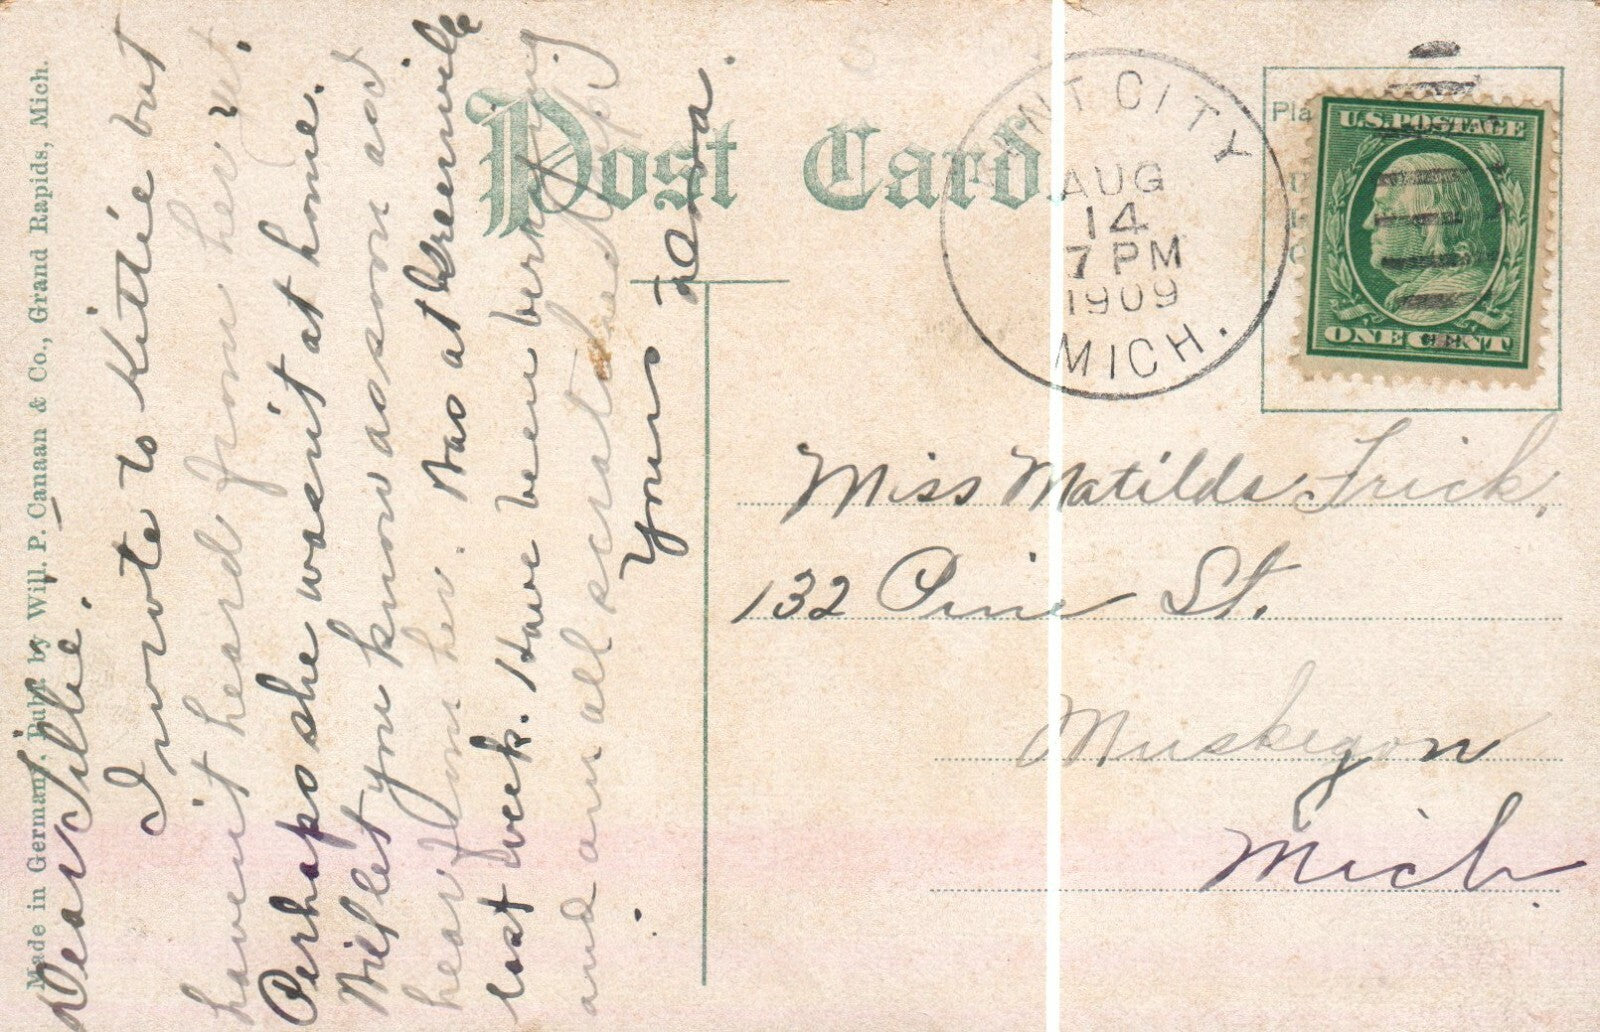 Made in Germany. Publ. by Will. P. Canaan & Co., Grand Rapids, Mich.
Dear Tillie.
I wrote to Kittie but
haven't heard from her yet.
Perhaps she wasn't at home.
Will let you know as soon as I
hear from her. Was at Greenville
last week. Have been berrying
and am all scratched up
Yours Dora.
Post Card.
NT CITY
AUG
14
7 PM
1909
MICH.
Pla
U.S. POSTAGE
ONE CENT
Miss Matilda Frick,
132 Pine St.
Muskegon
Mich